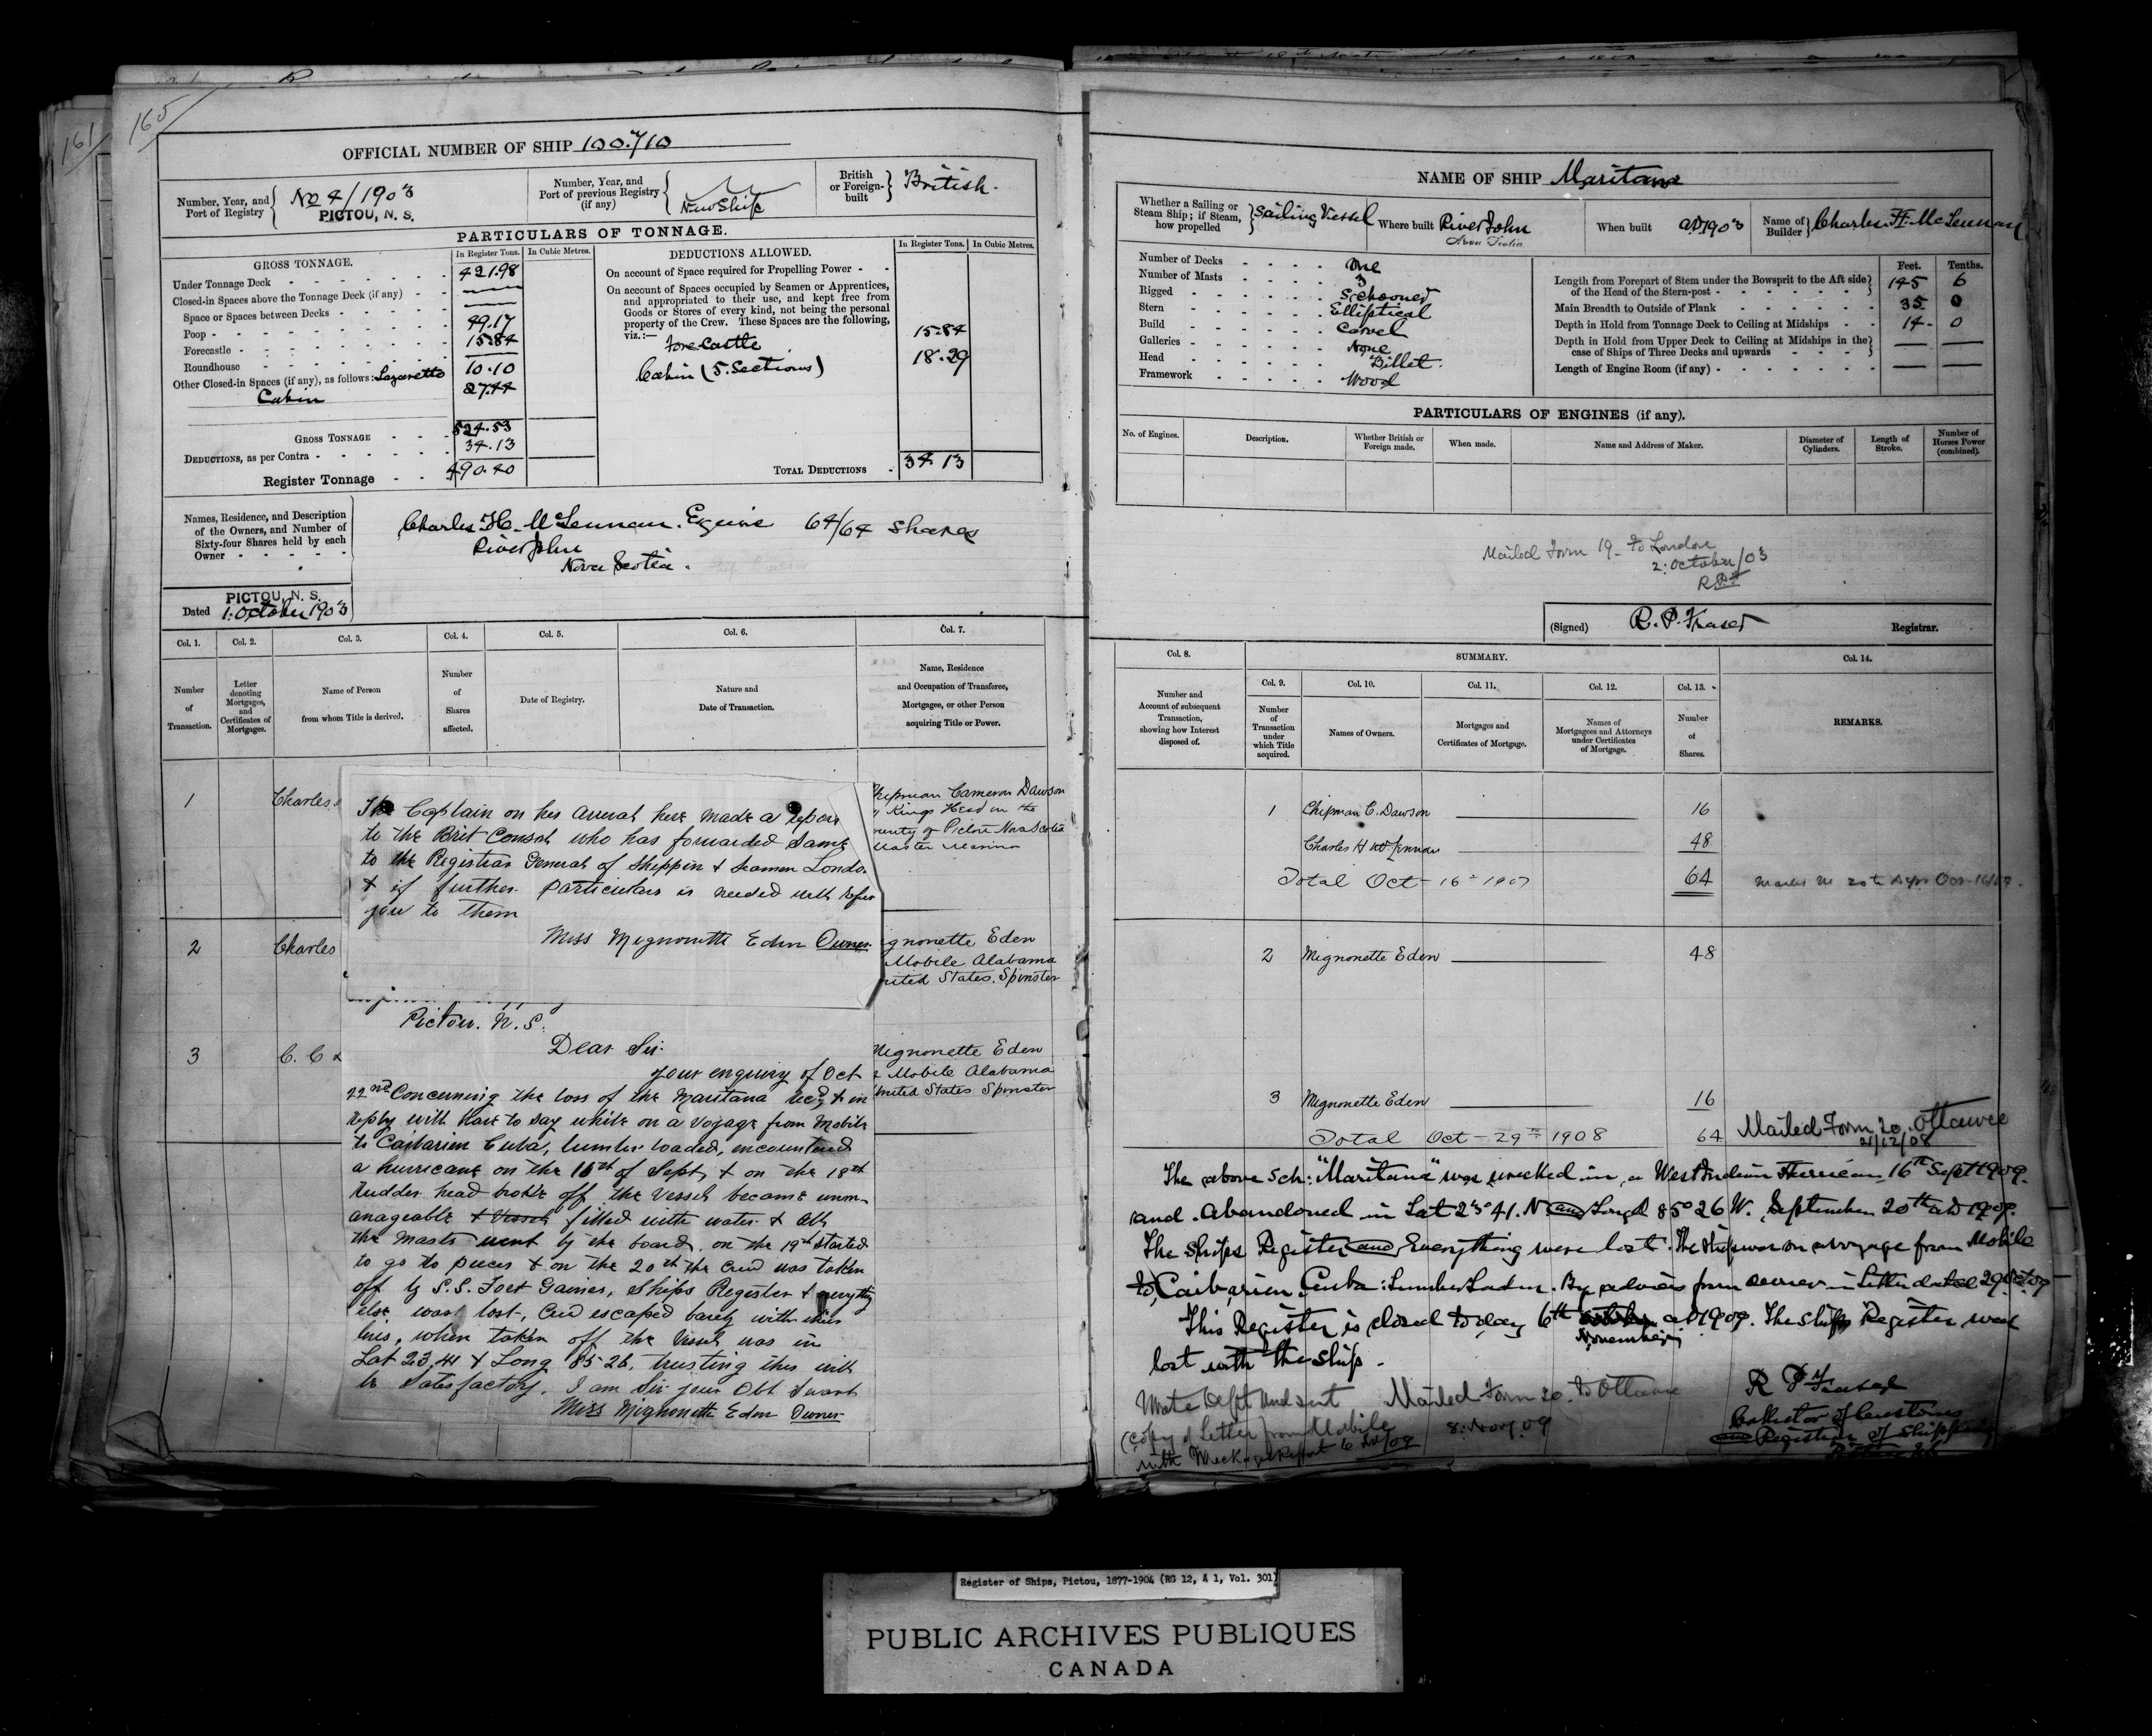 161
165
OFFICIAL NUMBER OF SHIP 100.710
Number, Year, and Port of Registry No 4/1903 PICTOU, N. S.
Number, Year, and Port of previous Registry (if any) New Ship
British or Foreign-built British.
PARTICULARS OF TONNAGE.
GROSS TONNAGE.
In Register Tons.
In Cubic Metres.
Under Tonnage Deck 421.98
Closed-in Spaces above the Tonnage Deck (if any)
Space or Spaces between Decks
Poop 49.17
Forecastle 15.84
Roundhouse
Other Closed-in Spaces (if any), as follows: Lazaretto 10.10
Cabin 27.44
GROSS TONNAGE 524.53
DEDUCTIONS, as per Contra 34.13
Register Tonnage 490.40
DEDUCTIONS ALLOWED.
In Register Tons.
In Cubic Metres.
On account of Space required for Propelling Power
On account of Spaces occupied by Seamen or Apprentices,
and appropriated to their use, and kept free from
Goods or Stores of every kind, not being the personal
property of the Crew. These Spaces are the following,
viz.:—
Fore Castle 15.84
Cabin (5. Sections) 18.29
TOTAL DEDUCTIONS 34.13
Names, Residence, and Description
of the Owners, and Number of
Sixty-four Shares held by each
Owner
Charles H. McLennan. Equire 64/64 Shares
River John
Nova Scotia.
PICTOU, N. S.
Dated 1. October 1903
Col. 1.
Col. 2.
Col. 3.
Col. 4.
Col. 5.
Col. 6.
Col. 7.
Number of Transaction.
Letter denoting Mortgages, and Certificates of Mortgages.
Name of Person from whom Title is derived.
Number of Shares affected.
Date of Registry.
Nature and Date of Transaction.
Name, Residence and Occupation of Transferee, Mortgagee, or other Person acquiring Title or Power.
1 Charles
Chipman Cameron Dawson
Kings Head in the
County of Pictou Nova Scotia
Master Mariner
The Captain on his arrival here made a report
to the Brit Consul who has forwarded same
to the Registrar General of Shippin & Seamen London
& if further particulars is needed will refer
you to them
Miss Mignonette Eden Owner
2 Charles
ignonette Eden
Mobile Alabama
nited States. Spinster
Pictou. N. S.
3 C. C
Mignonette Eden
Mobile Alabama
United States Spinster
Dear Sir
Your enquiry of Oct
22nd Concerning the loss of the Maritana recd, & in
reply will have to say while on a voyage from Mobile
to Caibarien Cuba, lumber loaded, encountered
a hurricane on the 16th of Sept, & on the 18th
rudder head broke off the vessel became unm-
anageable & vessel filled with water & all
the masts went by the board. on the 19th started
to go to pieces & on the 20th the crew was taken
off by S.S. Fort Gaines, Ships Register & everything
else was lost, Crew escaped barely with their
lives, when taken off the vessel was in
Lat 23.41 & Long 85-26, trusting this will
be satisfactory. I am Sir your Obt Servant
Miss Mignonette Eden Owner
NAME OF SHIP Maritana
Whether a Sailing or Steam Ship; if Steam, how propelled Sailing Vessel
Where built River John
Nova Scotia
When built AD1903
Name of Builder Charles. H. McLennan
Number of Decks One
Number of Masts 3
Rigged Schooner
Stern Elliptical
Build Carvel
Galleries None
Head Billet.
Framework Wood
Feet. Tenths.
Length from Forepart of Stem under the Bowsprit to the Aft side
of the Head of the Stern-post 145 6
Main Breadth to Outside of Plank 35 0
Depth in Hold from Tonnage Deck to Ceiling at Midships 14 0
Depth in Hold from Upper Deck to Ceiling at Midships in the
case of Ships of Three Decks and upwards
Length of Engine Room (if any)
PARTICULARS OF ENGINES (if any).
No. of Engines.
Description.
Whether British or Foreign made.
When made.
Name and Address of Maker.
Diameter of Cylinders.
Length of Stroke.
Number of Horses Power (combined).
Mailed Form 19 - to London
2: October/03
R.P.F
(Signed) R. P. Fraser Registrar.
Col. 8.
SUMMARY.
Col. 14.
Col. 9.
Col. 10.
Col. 11.
Col. 12.
Col. 13.
Number and Account of subsequent Transaction, showing how Interest disposed of.
Number of Transaction under which Title acquired.
Names of Owners.
Mortgages and Certificates of Mortgage.
Names of Mortgagees and Attorneys under Certificates of Mortgage.
Number of Shares.
REMARKS.
1 Chipman C. Dawson 16
Charles H McLennan 48
Total Oct - 16th 1907 64
2 Mignonette Eden 48
3 Mignonette Eden 16
Total Oct - 29th 1908 64
Mailed Form 20. Ottawa
21/12/08
The above Sch: "Maritana" was wrecked in, a West Indian Hurricane 16th Sept 1909.
and. Abandoned in Lat 23° 41. N and Longd 85° 26 W. September 20th AD 1909.
The Ships Register and Everything were lost. The Ship was on a voyage from Mobile
to Caibarien Cuba: Lumber Laden. By advices from owner in letter dated 29 Oct. 09
This Register is closed to day 6th November AD 1909. The Ships Register was
lost with the Ship.
Wrote Dept and sent
(Copy of letter from Mobile
with Wreckage Report 6 Nov/09
Mailed Form 20. to Ottawa
8. Nov. 09
R P Fraser
Collector of Customs
and Registrar of Shipping
Register of Ships, Pictou, 1877-1904 (RG 12, A 1, Vol. 301)
PUBLIC ARCHIVES PUBLIQUES
CANADA